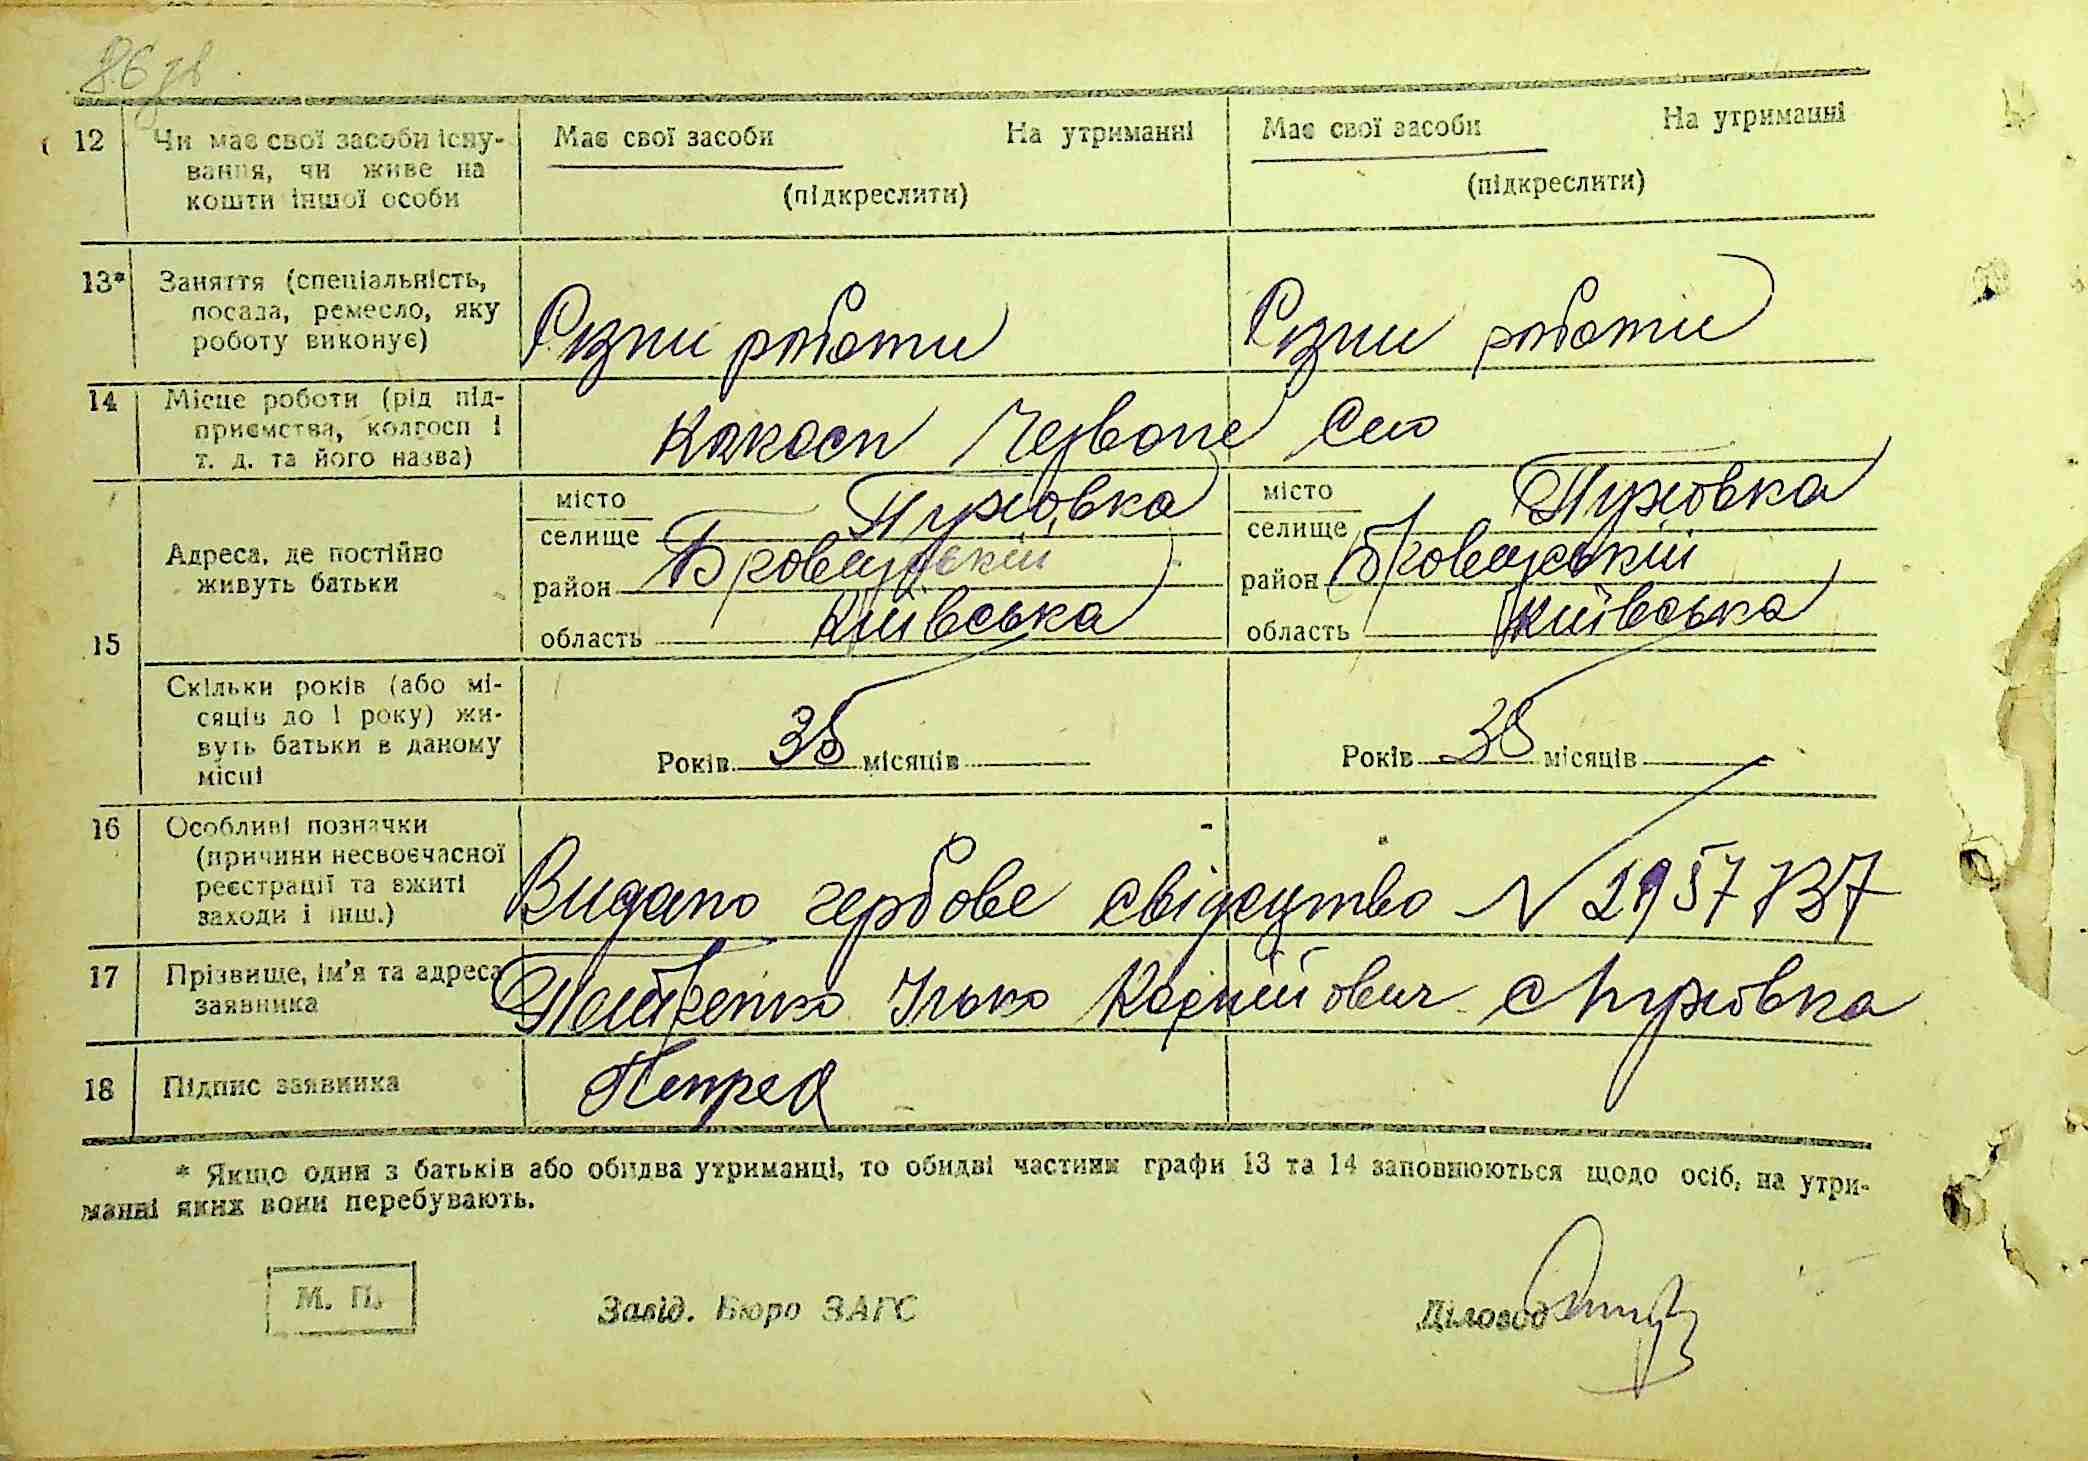 86 зв
12 Чи має свої засоби існу- Має свої засоби На утриманні Має свої засоби На утриманні
вання, чи живе на (підкреслити) (підкреслити)
кошти іншої особи
13* Заняття (спеціальність,
посада, ремесло, яку Різни роботи Різни роботи
роботу виконує)
14 Місце роботи (рід під-
приємства, колгосп і Колхосп Червоне Село
т. д. та його назва)
15 Адреса, де постійно
живуть батьки
місто
селище Пуховка місто
селище Пуховка
район Броварський район Броварській
область Київська область Київська
Скільки років (або мі-
сяців до 1 року) жи-
вуть батьки в даному Років 35 місяців Років 38 місяців
місці
16 Особливі позначки
(причини несвоєчасної
реєстрації та вжиті Видано гербове свідоцтво N
заходи і інш.)
17 Прізвище, ім'я та адреса
заявника Петренко Ілько Корнійович с Пуховка
18 Підпис заявника
* Якщо один з батьків або обидва утриманці, то обидві частини графи 13 та 14 заповнюються щодо осіб, на утри-
манні яких вони перебувають.
М. П. Завід. Бюро ЗАГС Діловод